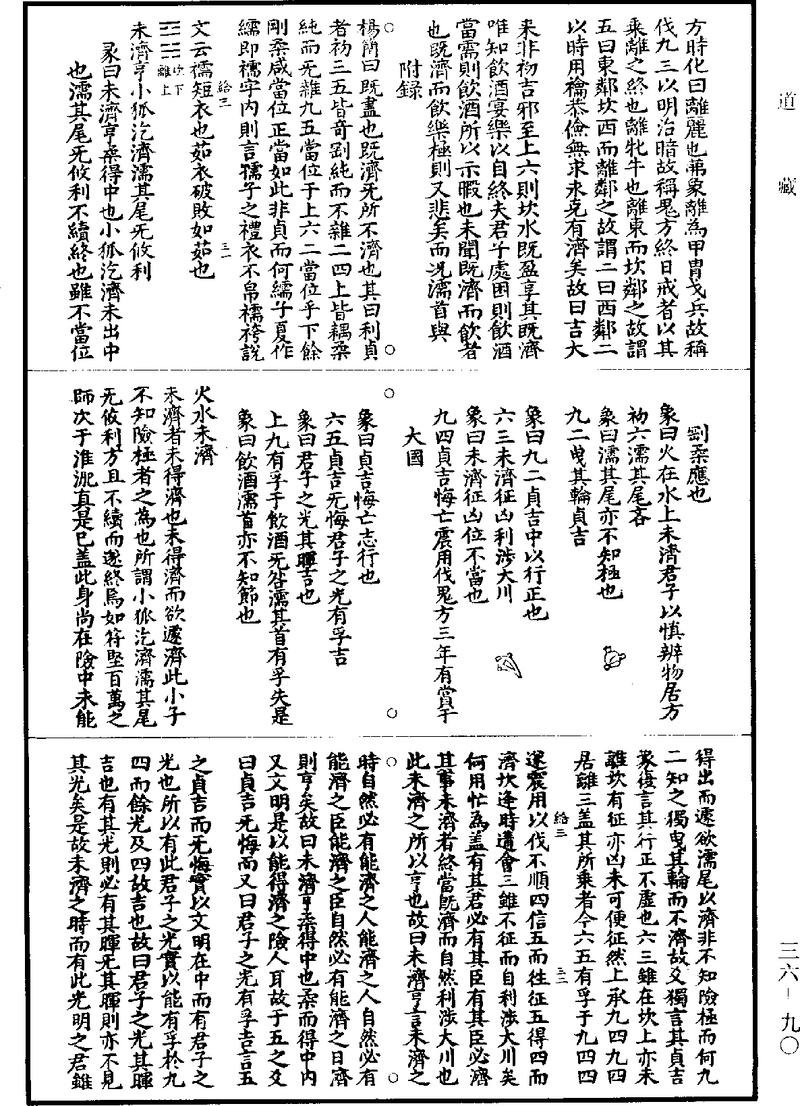 道藏
方時化曰離麗也苐象離為甲胄戈兵故稱
伐九三以明治暗故稱鬼方終日戒者以其
乘離之終也離牝牛也離東而坎鄰之故謂
五曰東鄰坎西而離鄰之故謂二曰西鄰二
以時用禴恭儉無求求克有濟矣故曰吉大
来非初吉邪至上六則坎水既盈享其既濟
唯知飲酒宴樂以自終夫君子處困則飲酒
當需則飲酒所以示暇也未聞既濟而飲者
也既濟而飲樂極則又悲矣而況濡首與
附録
楊蕳曰既盡也既濟无所不濟也其曰利貞
者初三五皆竒剛純而不雜二四上皆耦柔
純而无雜九五當位于上六二當位乎下餘
剛柔咸當位正當如此非貞而何繻子夏作
繻即襦字内則言孺子之禮衣不帛襦袴說
文云襦短衣也茹衣破敗如茹也
給三 三一
坎下離上
未濟亨小狐汔濟濡其尾无攸利
彖曰未濟亨柔得中也小狐汔濟未出中
也濡其尾无攸利不續終也雖不當位
剛柔應也
象曰火在水上未濟君子以慎辨物居方
初六濡其尾吝
象曰濡其尾亦不知極也
九二曵其輪貞吉
象曰九二貞吉中以行正也
六三未濟征凶利涉大川
象曰未濟征凶位不當也
九四貞吉悔亡震用伐鬼方三年有賞于
大國
象曰貞吉悔亡志行也
六五貞吉无悔君子之光有孚吉
象曰君子之光其暉吉也
上九有孚于飲酒无咎濡其首有孚失是
象曰飲酒濡首亦不知節也
火水未濟
未濟者未得濟也未得濟而欲遽濟此小子
不知險極者之為也所謂小狐汔濟濡其尾
无攸利方且不續而遂終焉如苻堅百萬之
師次于淮淝真是巳盖此身尚在險中未能
得出而遽欲濡尾以濟非不知險極而何九
二知之獨曳其輪而不濟故爻獨言其貞吉
象復言其行正不虛也六三雖在坎上亦未
離坎有征亦凶未可便征然上承九四九四
居離三盖其所乘者今六五有孚于九四四
遂震用以伐不順四信五而徃征五得四而
給三 三二
濟坎逢時遭會三雖不征而自利涉大川矣
何用忙為盖有其君必有其臣有其臣必濟
其事未濟者終當旣濟而自然利涉大川也
此未濟之所以亨也故曰未濟亨言未濟之
時自然必有能濟之人能濟之人自然必有
能濟之臣能濟之臣自然必有能濟之日濟
則亨矣故曰未濟亨柔得中也柔而得中内
又文明是以能得濟之險人耳故于五之爻
曰貞吉无悔而又曰君子之光有孚吉言五
之貞吉而无悔實以文明在中而有君子之
光也所以有此君子之光實以能有孚於九
四而餘光及四故吉也故曰君子之光其暉
吉也有其光則必有其暉无其暉則亦不見
其光矣是故未濟之時而有此光明之君雖
三六-九〇